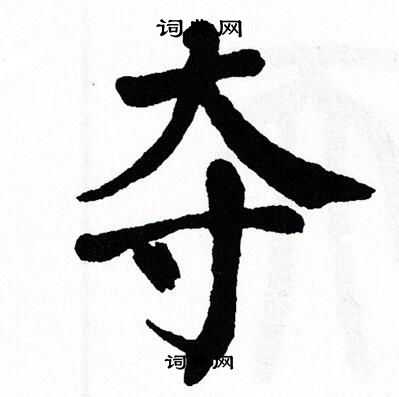 词典网
夺
词典网